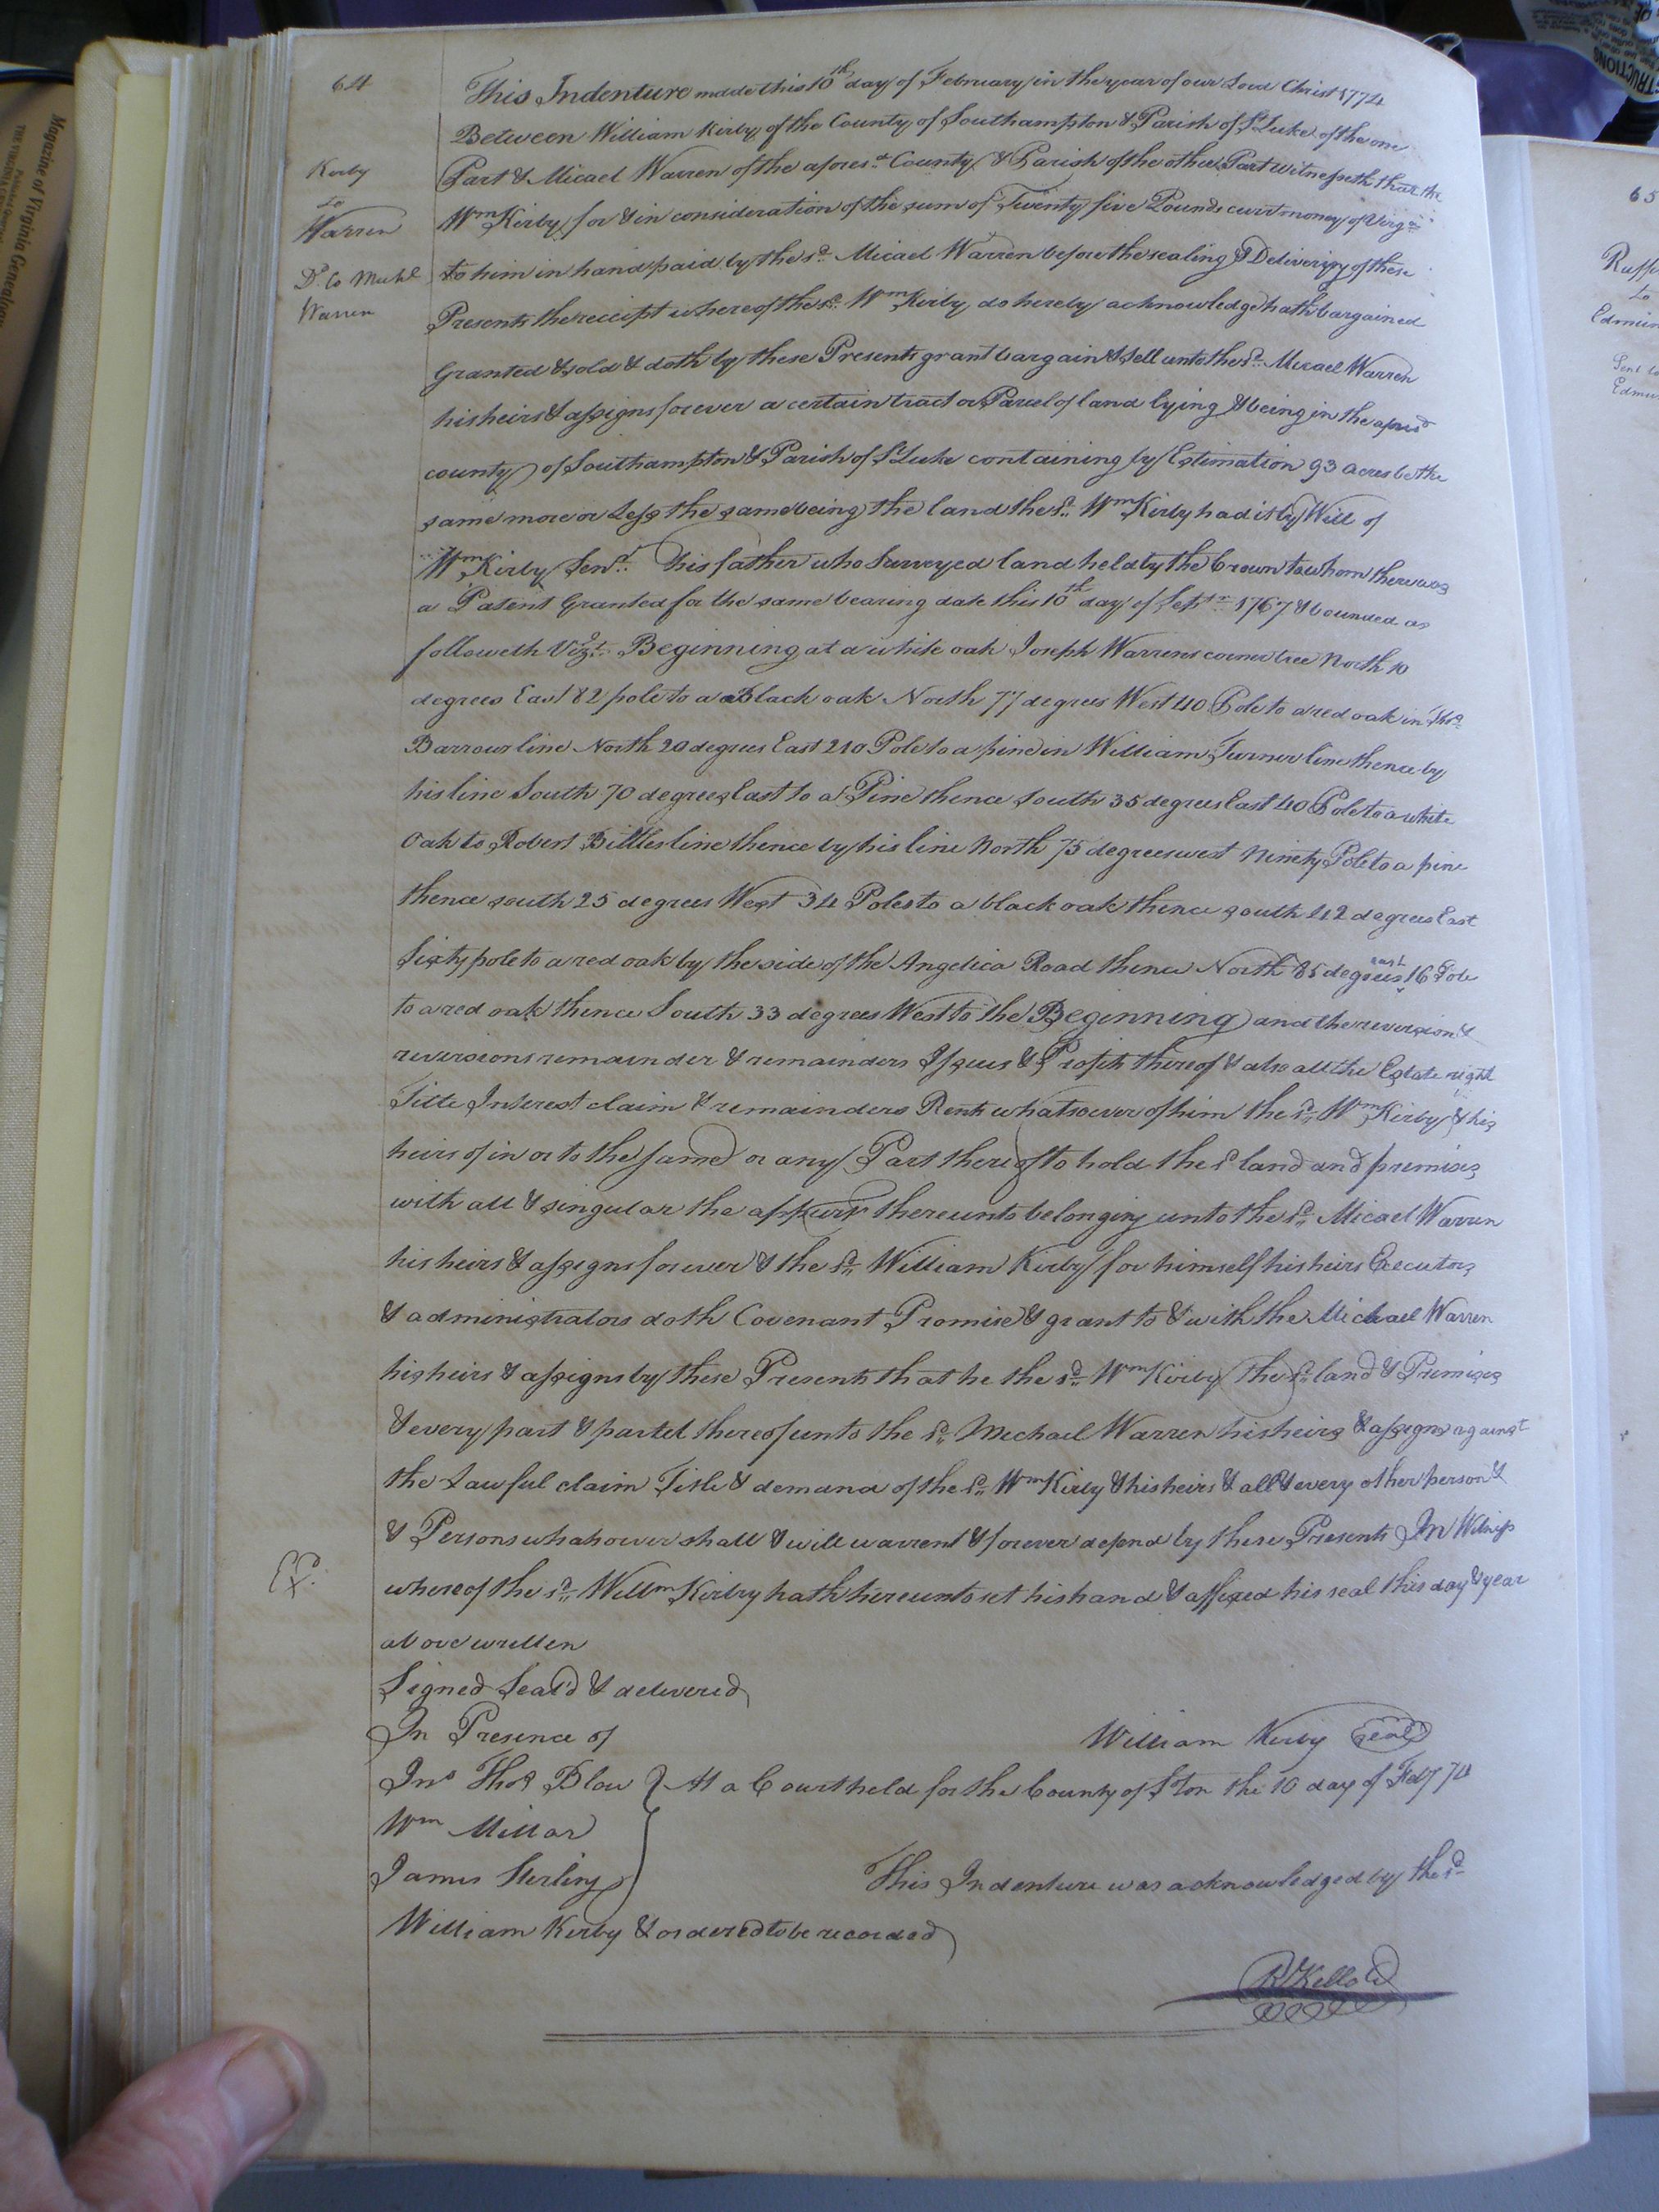 64
This Indenture made this 10th day of February in the year of our Lord Christ 1774
Between William Kirby of the County of Southampton & Parish of St Luke of the one
Kirby
to
Warren
Part & Micael Warren of the afores.d County & Parish of the other Part witnesseth that the
Wm Kirby for & in consideration of the sum of Twenty five Pounds curt money of Virga
Dd. to Michl
Warren
to him in hand paid by the sd Micael Warren before the sealing & Delivering of these
Presents the reciept whereof the sd. Wm Kirby do hereby acknowledge hath bargained
Granted & sold & doth by these Presents grant bargain & sell unto the sd. Micael Warren
his heirs & assigns forever a certain tract or Parcel of land lying & being in the afores'd
county of Southampton & Parish of St Luke containing by Estimation 93 acres be the
same more or Less the same being the land the sd. Wm Kirby had it by Will of
Wm Kirby Senr. his father who Surveyed land held by the Crown to whom there was
a Patent Granted for the same bearing date this 10th day of Septr 1767 & bounded as
followeth Vizt. Beginning at a white oak Joseph Warrens corner tree North 10
degrees East 82 pole to a a Black oak North 77 degrees West 40 Pole to a red oak in Thos
Barrow line North 20 degrees East 210 Pole to a pine in William Turner line thence by
his line South 70 degrees East to a Pine thence South 35 degrees East 40 Pole to a white
Oak to Robert Bittles line thence by his line North 75 degrees west Ninety Pole to a pine
thence south 25 degrees West 34 Poles to a black oak thence south 42 degrees East
Sixty pole to a red oak by the side of the Angelica Road thence North 85 degrees east 16 Pole
to a red oak thence South 33 degrees West to the Beginning and the reversion &
reversions remainder & remainders Issues & Profits thereof & also all the Estate right
Title Interest claim & remainders Rents whatsoever of him the sd. Wm Kirby & his
heirs of in or to the same or any Part thereof to hold the sd land and premises
with all & singular the appurts thereunto belonging unto the sd. Micael Warren
his heirs & assigns forever & the sd. William Kirby for himself his heirs Executors
& administrators doth Covenant Promise & grant to & with the Michael Warren
his heirs & assigns by these Presents that he the sd. Wm Kirby the sd. land & Premises
& every part & partel thereof unto the sd. Michael Warren his heirs & assigns against
the Lawful claim Title & demand of the sd. Wm Kirby & his heirs & all & every other person &
& Persons whahower shall & will warrent & forever defend by these Presents In Witness
Ex.d
whereof the sd. Willm Kirby hath hereunto set his hand & affixed his seal this day & year
above written
Signed Seal'd & delivered
In Presence of
William Kirby seal
Jno Thos Blow } At a Court held for the County of S'ton the 10 day of Feby 74
Wm Millar
James Sterling
This Indenture was acknowledged by the sd
William Kirby & ordered to be recorded
R Kello Cl
65
to
Magazine of Virginia Genealogy